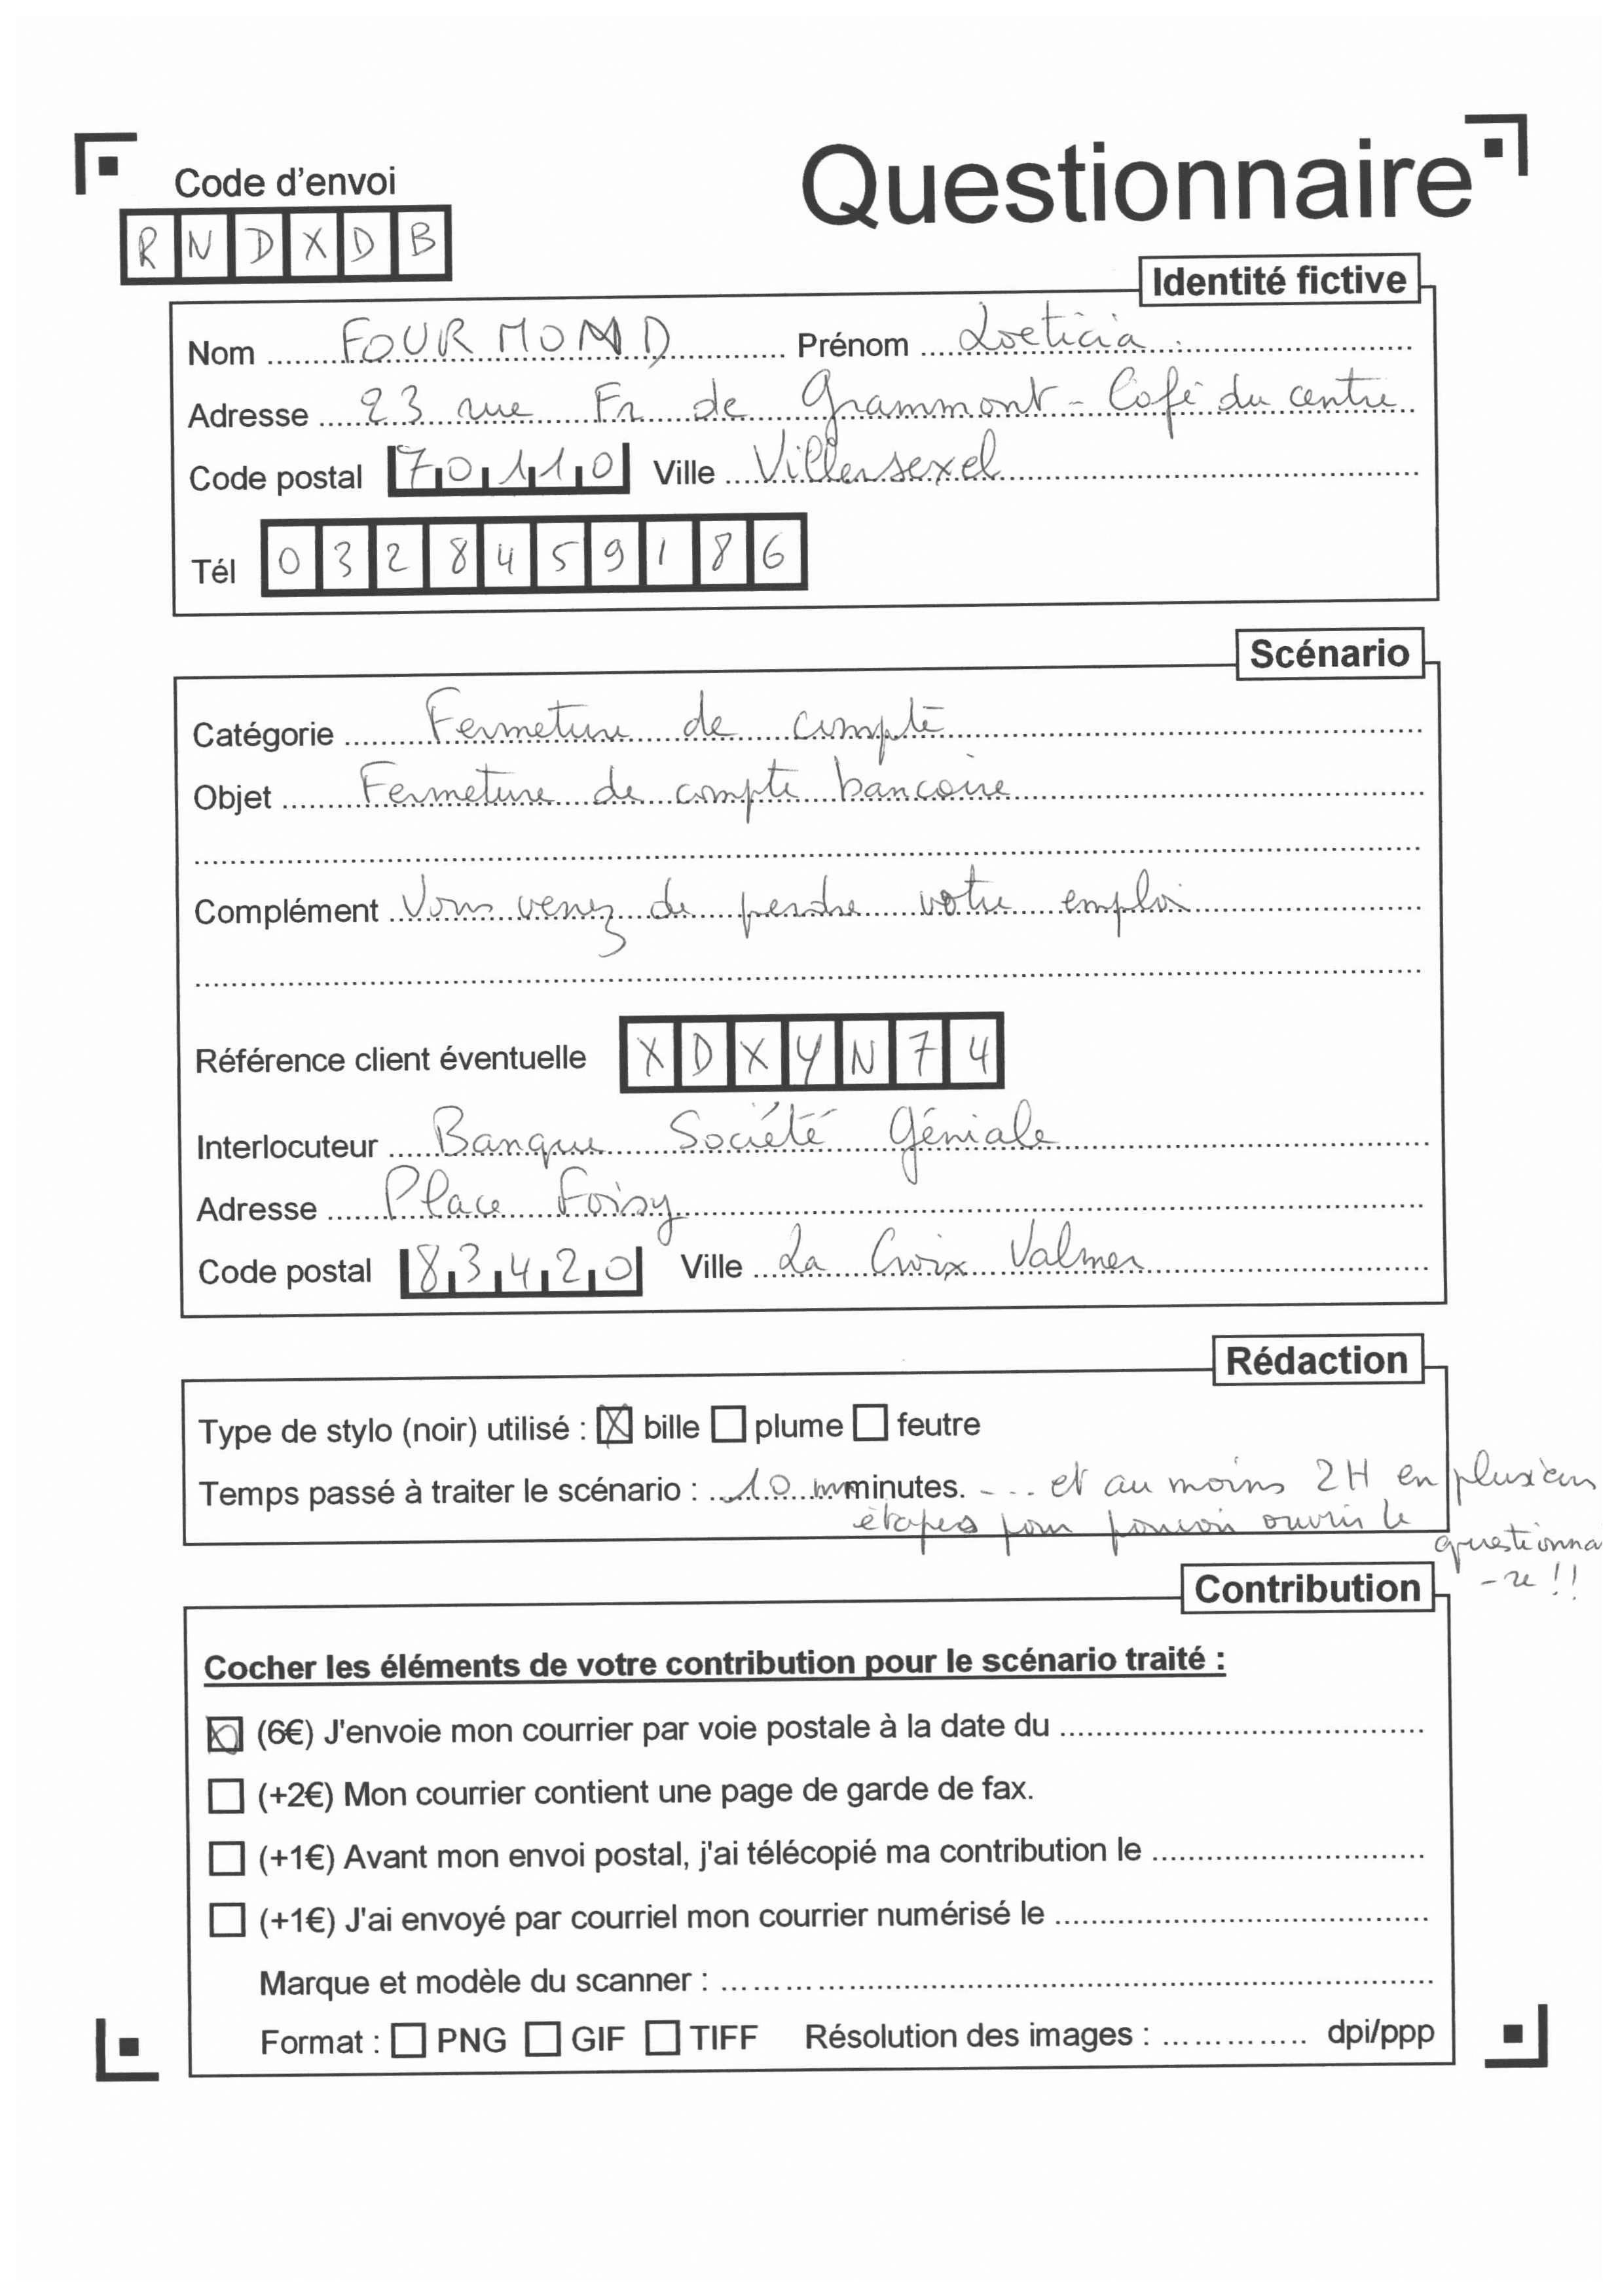 Code d'envoi
Questionnaire
R N D X D B
Identité fictive
Nom FOURMOND Prénom Loeticia
Adresse 23 rue Fr de Grammont - Café du centre
Code postal 70110 Ville Villersexel
Tél 0328459186
Scénario
Catégorie Fermeture de compte
Objet Fermeture de compte bancaire
Complément Vous venez de perdre votre emploi
Référence client éventuelle XDXYN74
Interlocuteur Banque Société Géniale
Adresse Place Foisy
Code postal 83420 Ville La Croix Valmer
Rédaction
Type de stylo (noir) utilisé : ☒ bille ☐ plume ☐ feutre
Temps passé à traiter le scénario : 10 mn minutes. - ... et au moins 2H en plusieurs
étapes pour pouvoir ouvrir le
questionna
-re !!
Contribution
Cocher les éléments de votre contribution pour le scénario traité :
☒ (6€) J'envoie mon courrier par voie postale à la date du
☐ (+2€) Mon courrier contient une page de garde de fax.
☐ (+1€) Avant mon envoi postal, j'ai télécopié ma contribution le
☐ (+1€) J'ai envoyé par courriel mon courrier numérisé le
Marque et modèle du scanner :
Format : ☐ PNG ☐ GIF ☐ TIFF Résolution des images : dpi/ppp